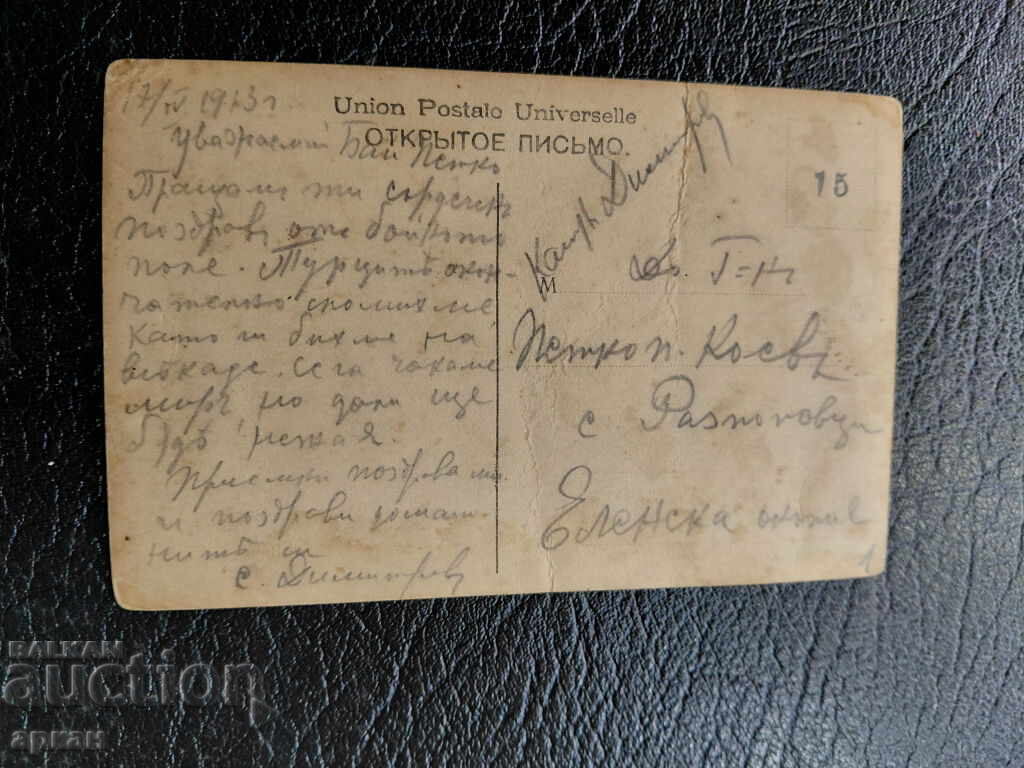 17/IV 1913 г.
Уважаемий Бай Петко
Пращамъ ти сърдеченъ
поздравъ отъ бойното
поле. Турцитѣ окон-
чателно сломихме
Както и бихме на
всѣкаде. Сега чакаме
миръ но дали ще
бѫдѣ
Приеми поздрава ми
и поздрави домаш-
нитѣ ти
с. Димитровъ
Union Postale Universelle
ОТКРЫТОЕ ПИСЬМО.
Димитровъ
15
M
Г-нъ
Петко п. Коевъ
с Разпоповци
Еленска околие
1
BALKAN
auction
аркан